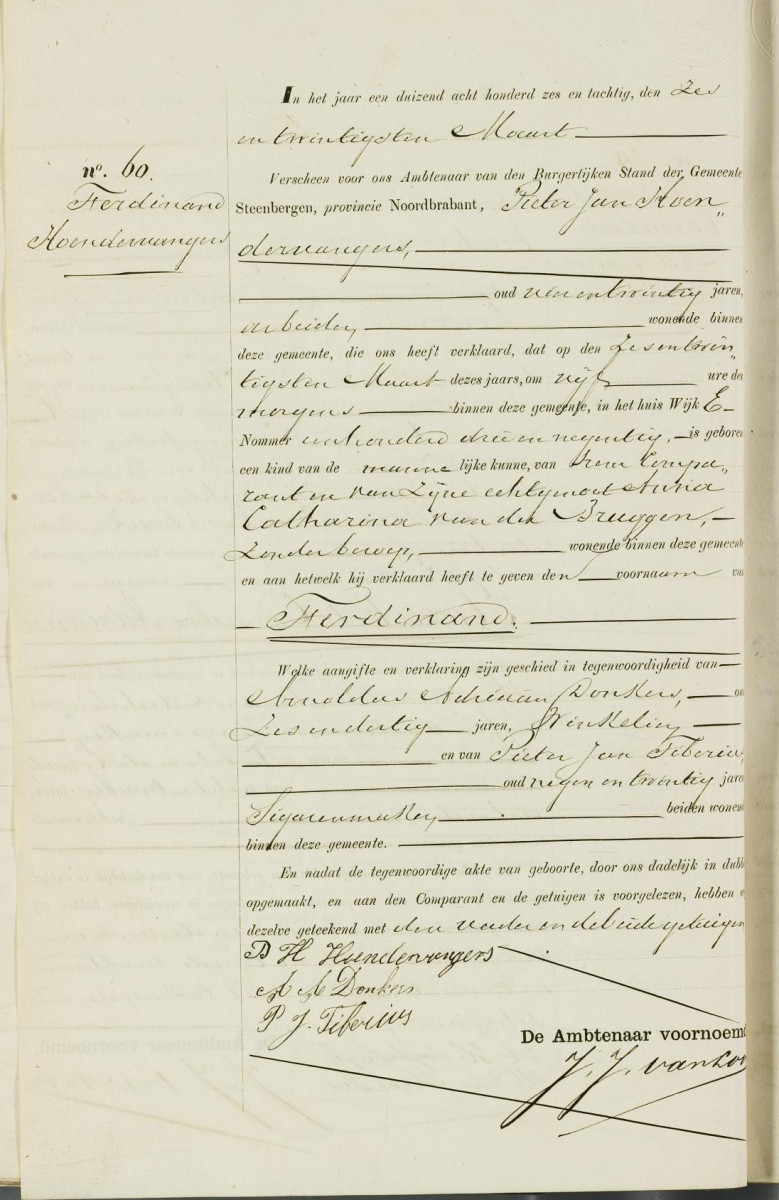 In het jaar een duizend acht honderd zes en tachtig, den Zes
en twintigsten Maart
nº. 60.
Ferdinand
Hoendervangers
Verscheen voor ons Ambtenaar van den Burgerlijken Stand der Gemeente
Steenbergen, provincie Noordbrabant, Pieter Jan Hoen„
dervangers,
oud vierentwintig jaren,
arbeider, wonende binnen
deze gemeente, die ons heeft verklaard, dat op den Zesentwin„
tigsten Maart dezes jaars, om vijf ure des
morgens binnen deze gemeente, in het huis Wijk E
Nommer eenhonderd drie en negentig, is geboren
een kind van de manne lijke kunne, van hem Compa„
rant en van Zijne echtgenoot Anna
Catharina van der Bruggen,
Zonder beroep, wonende binnen deze gemeente
en aan hetwelk hij verklaard heeft te geven den voornaam va
Ferdinand.
Welke aangifte en verklaring zijn geschied in tegenwoordigheid van
Arnoldus Adriaan Donkers, ou
Zesendertig jaren, Winkelier,
en van Pieter Jan Tiberius,
oud negen en twintig jare
Sigarenmaker, beiden wonen
binnen deze gemeente.
En nadat de tegenwoordige akte van geboorte, door ons dadelijk in dubb
opgemaakt, en aan den Comparant en de getuigen is voorgelezen, hebben w
dezelve geteekend met den vader en de beide getuigen
P H Hundervangers
A A Donkers
P J. Tiberius
De Ambtenaar voornoemd
J. J. van